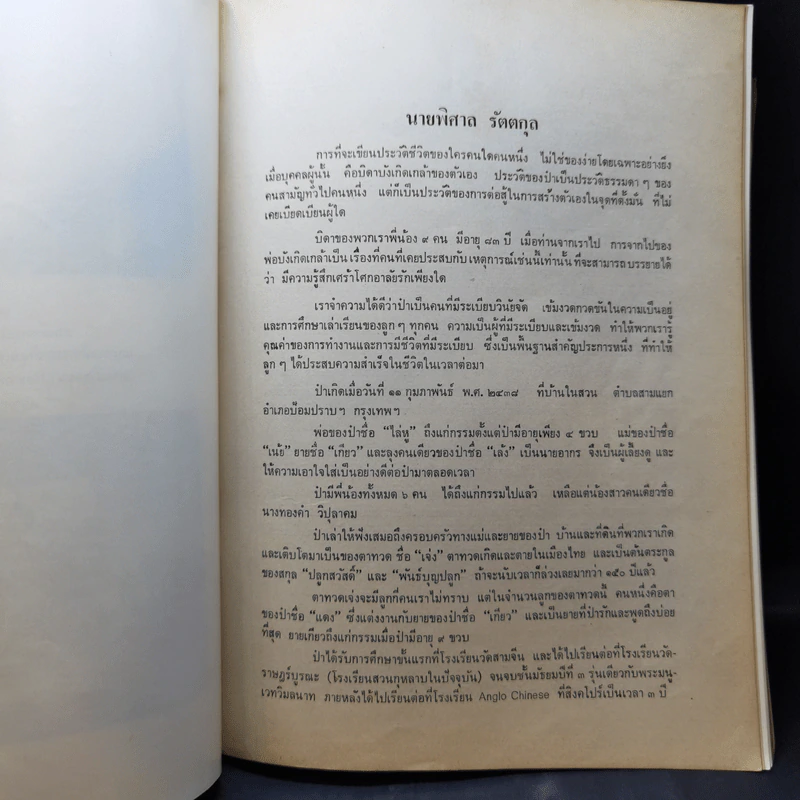 นายพิศาล รัตตกุล
การที่จะเขียนประวัติชีวิตของใครคนใดคนหนึ่ง ไม่ใช่ของง่ายโดยเฉพาะอย่างยิ่ง
เมื่อบุคคลผู้นั้น คือบิดาบังเกิดเกล้าของตัวเอง ประวัติของป๋าเป็นประวัติธรรมดา ๆ ของ
คนสามัญทั่วไปคนหนึ่ง แต่ก็เป็นประวัติของการต่อสู้ในการสร้างตัวเองในจุดที่ตั้งมั่น ที่ไม่
เคยเบียดเบียนผู้ใด
บิดาของพวกเราพี่น้อง ๙ คน มีอายุ ๘๓ ปี เมื่อท่านจากเราไป การจากไปของ
พ่อบังเกิดเกล้าเป็นเรื่องที่คนที่เคยประสบกับเหตุการณ์เช่นนี้เท่านั้นที่จะสามารถบรรยายได้
ว่า มีความรู้สึกเศร้าโศกอาลัยรักเพียงใด
เราจำความได้ดีว่าป๋าเป็นคนที่มีระเบียบวินัยจัด เข้มงวดกวดขันในความเป็นอยู่
และการศึกษาเล่าเรียนของลูก ๆ ทุกคน ความเป็นผู้ที่มีระเบียบและเข้มงวด ทำให้พวกเรารู้
คุณค่าของการทำงานและการมีชีวิตที่มีระเบียบ ซึ่งเป็นพื้นฐานสำคัญประการหนึ่ง ที่ทำให้
ลูก ๆ ได้ประสบความสำเร็จในชีวิตในเวลาต่อมา
ป๋าเกิดเมื่อวันที่ ๑๑ กุมภาพันธ์ พ.ศ. ๒๔๓๘ ที่บ้านในสวน ตำบลสามแยก
อำเภอป้อมปราบฯ กรุงเทพฯ
พ่อของป๋าชื่อ “ไล่หู” ถึงแก่กรรมตั้งแต่ป๋ามีอายุเพียง ๔ ขวบ แม่ของป๋าชื่อ
“เน้ย” ยายชื่อ “เกียว” และลุงคนเดียวของป๋าชื่อ “เล้ง” เป็นนายอากร จึงเป็นผู้เลี้ยงดู และ
ให้ความเอาใจใส่เป็นอย่างดีต่อป๋ามาตลอดเวลา
ป๋ามีพี่น้องทั้งหมด ๖ คน ได้ถึงแก่กรรมไปแล้ว เหลือแต่น้องสาวคนเดียวชื่อ
นางทองคำ วิปุลาคม
ป๋าเล่าให้ฟังเสมอถึงครอบครัวทางแม่และยายของป๋า บ้านและที่ดินที่พวกเราเกิด
และเติบโตมาเป็นของตาทวด ชื่อ “เจ่ง” ตาทวดเกิดและตายในเมืองไทย และเป็นต้นตระกูล
ของสกุล “ปลูกสวัสดิ์” และ “พันธ์บุญปลูก” ถ้าจะนับเวลาก็ล่วงเลยมากว่า ๑๕๐ ปีแล้ว
ตาทวดเจ่งจะมีลูกกี่คนเราไม่ทราบ แต่ในจำนวนลูกของตาทวดนี้ คนหนึ่งคือตา
ของป๋าชื่อ “แดง” ซึ่งแต่งงานกับยายของป๋าชื่อ “เกียว” และเป็นยายที่ป๋ารักและพูดถึงบ่อย
ที่สุด ยายเกียวถึงแก่กรรมเมื่อป๋ามีอายุ ๙ ขวบ
ป๋าได้รับการศึกษาขั้นแรกที่โรงเรียนวัดสามจีน และได้ไปเรียนต่อที่โรงเรียนวัด-
ราษฎร์บูรณะ (โรงเรียนสวนกุหลาบในปัจจุบัน) จนจบชั้นมัธยมปีที่ ๓ รุ่นเดียวกับพระมนู-
เวทวิมลนาท ภายหลังได้ไปเรียนต่อที่โรงเรียน Anglo Chinese ที่สิงคโปร์เป็นเวลา ๓ ปี